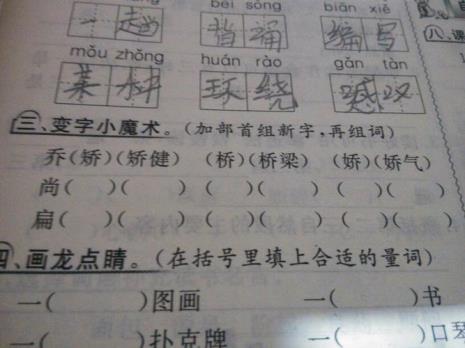 bèi sòng biān xiě
一 趟 背 诵 编 写 八、课
mǒu zhǒng huán rào gǎn tàn
某 种 环 绕 感 叹
三、变字小魔术。(加部首组新字,再组词)
乔(矫)(矫健) (桥)(桥梁) (娇)(娇气)
尚( )( ) ( )( ) ( )( )
扁( )( ) ( )( ) ( )( )
四、画龙点睛。(在括号里填上合适的量词)
一( )图画 一( )书
一( )扑克牌 一( )口琴